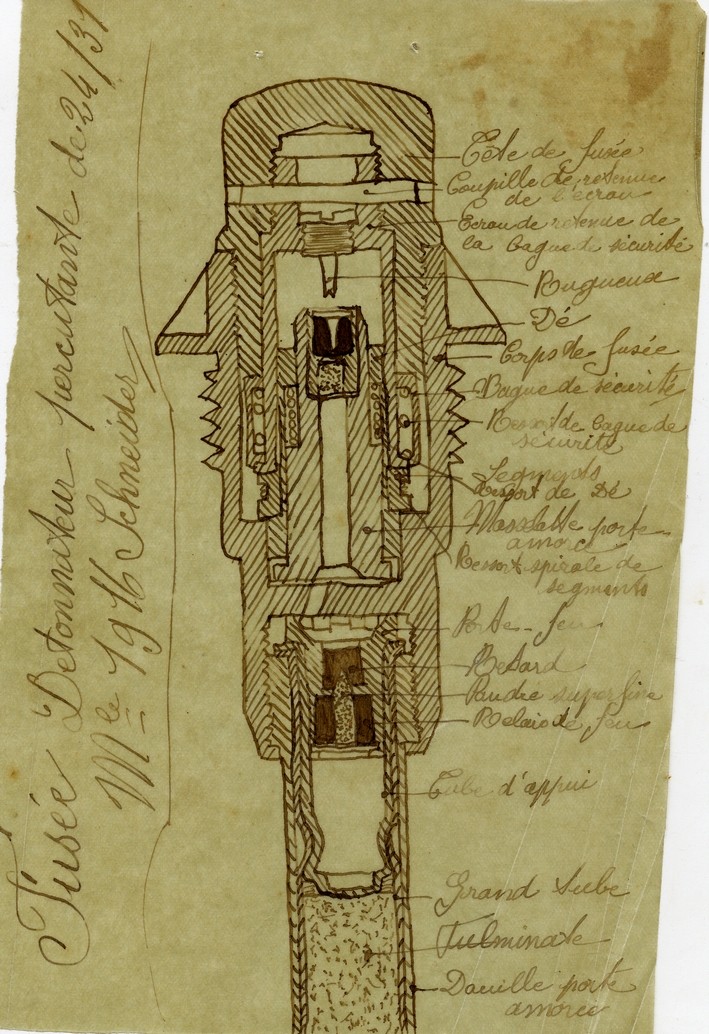 Fusée Detonnateur percutante de 24/31
Mle 1916 Schneider
Tête de fusée
Coupille de retenue
de l'écrou
Ecrou de retenue de
la bague de sécurité
Rugueux
Dé
Corps de fusée
Bague de sécurité
Ressort de bague de
sécurité
Segments
Ressort de Dé
Masselotte porte
amorce
Ressort spirale de
segments
Porte-feu
Retard
Poudre superfine
Relais de feu
Tube d'appui
Grand tube
Fulminate
Douille porte
amorce